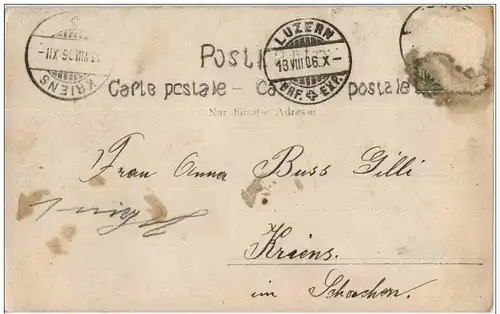 POSTK
LUZERN
18.VIII.06.X–
BRF. EXP.
–IIX 90.IIIΛ
KRIENS
Carte postale – Ca postale
Nur für die Adresse
Frau Anna Buss Gilli
Kriens.
im Schachen.